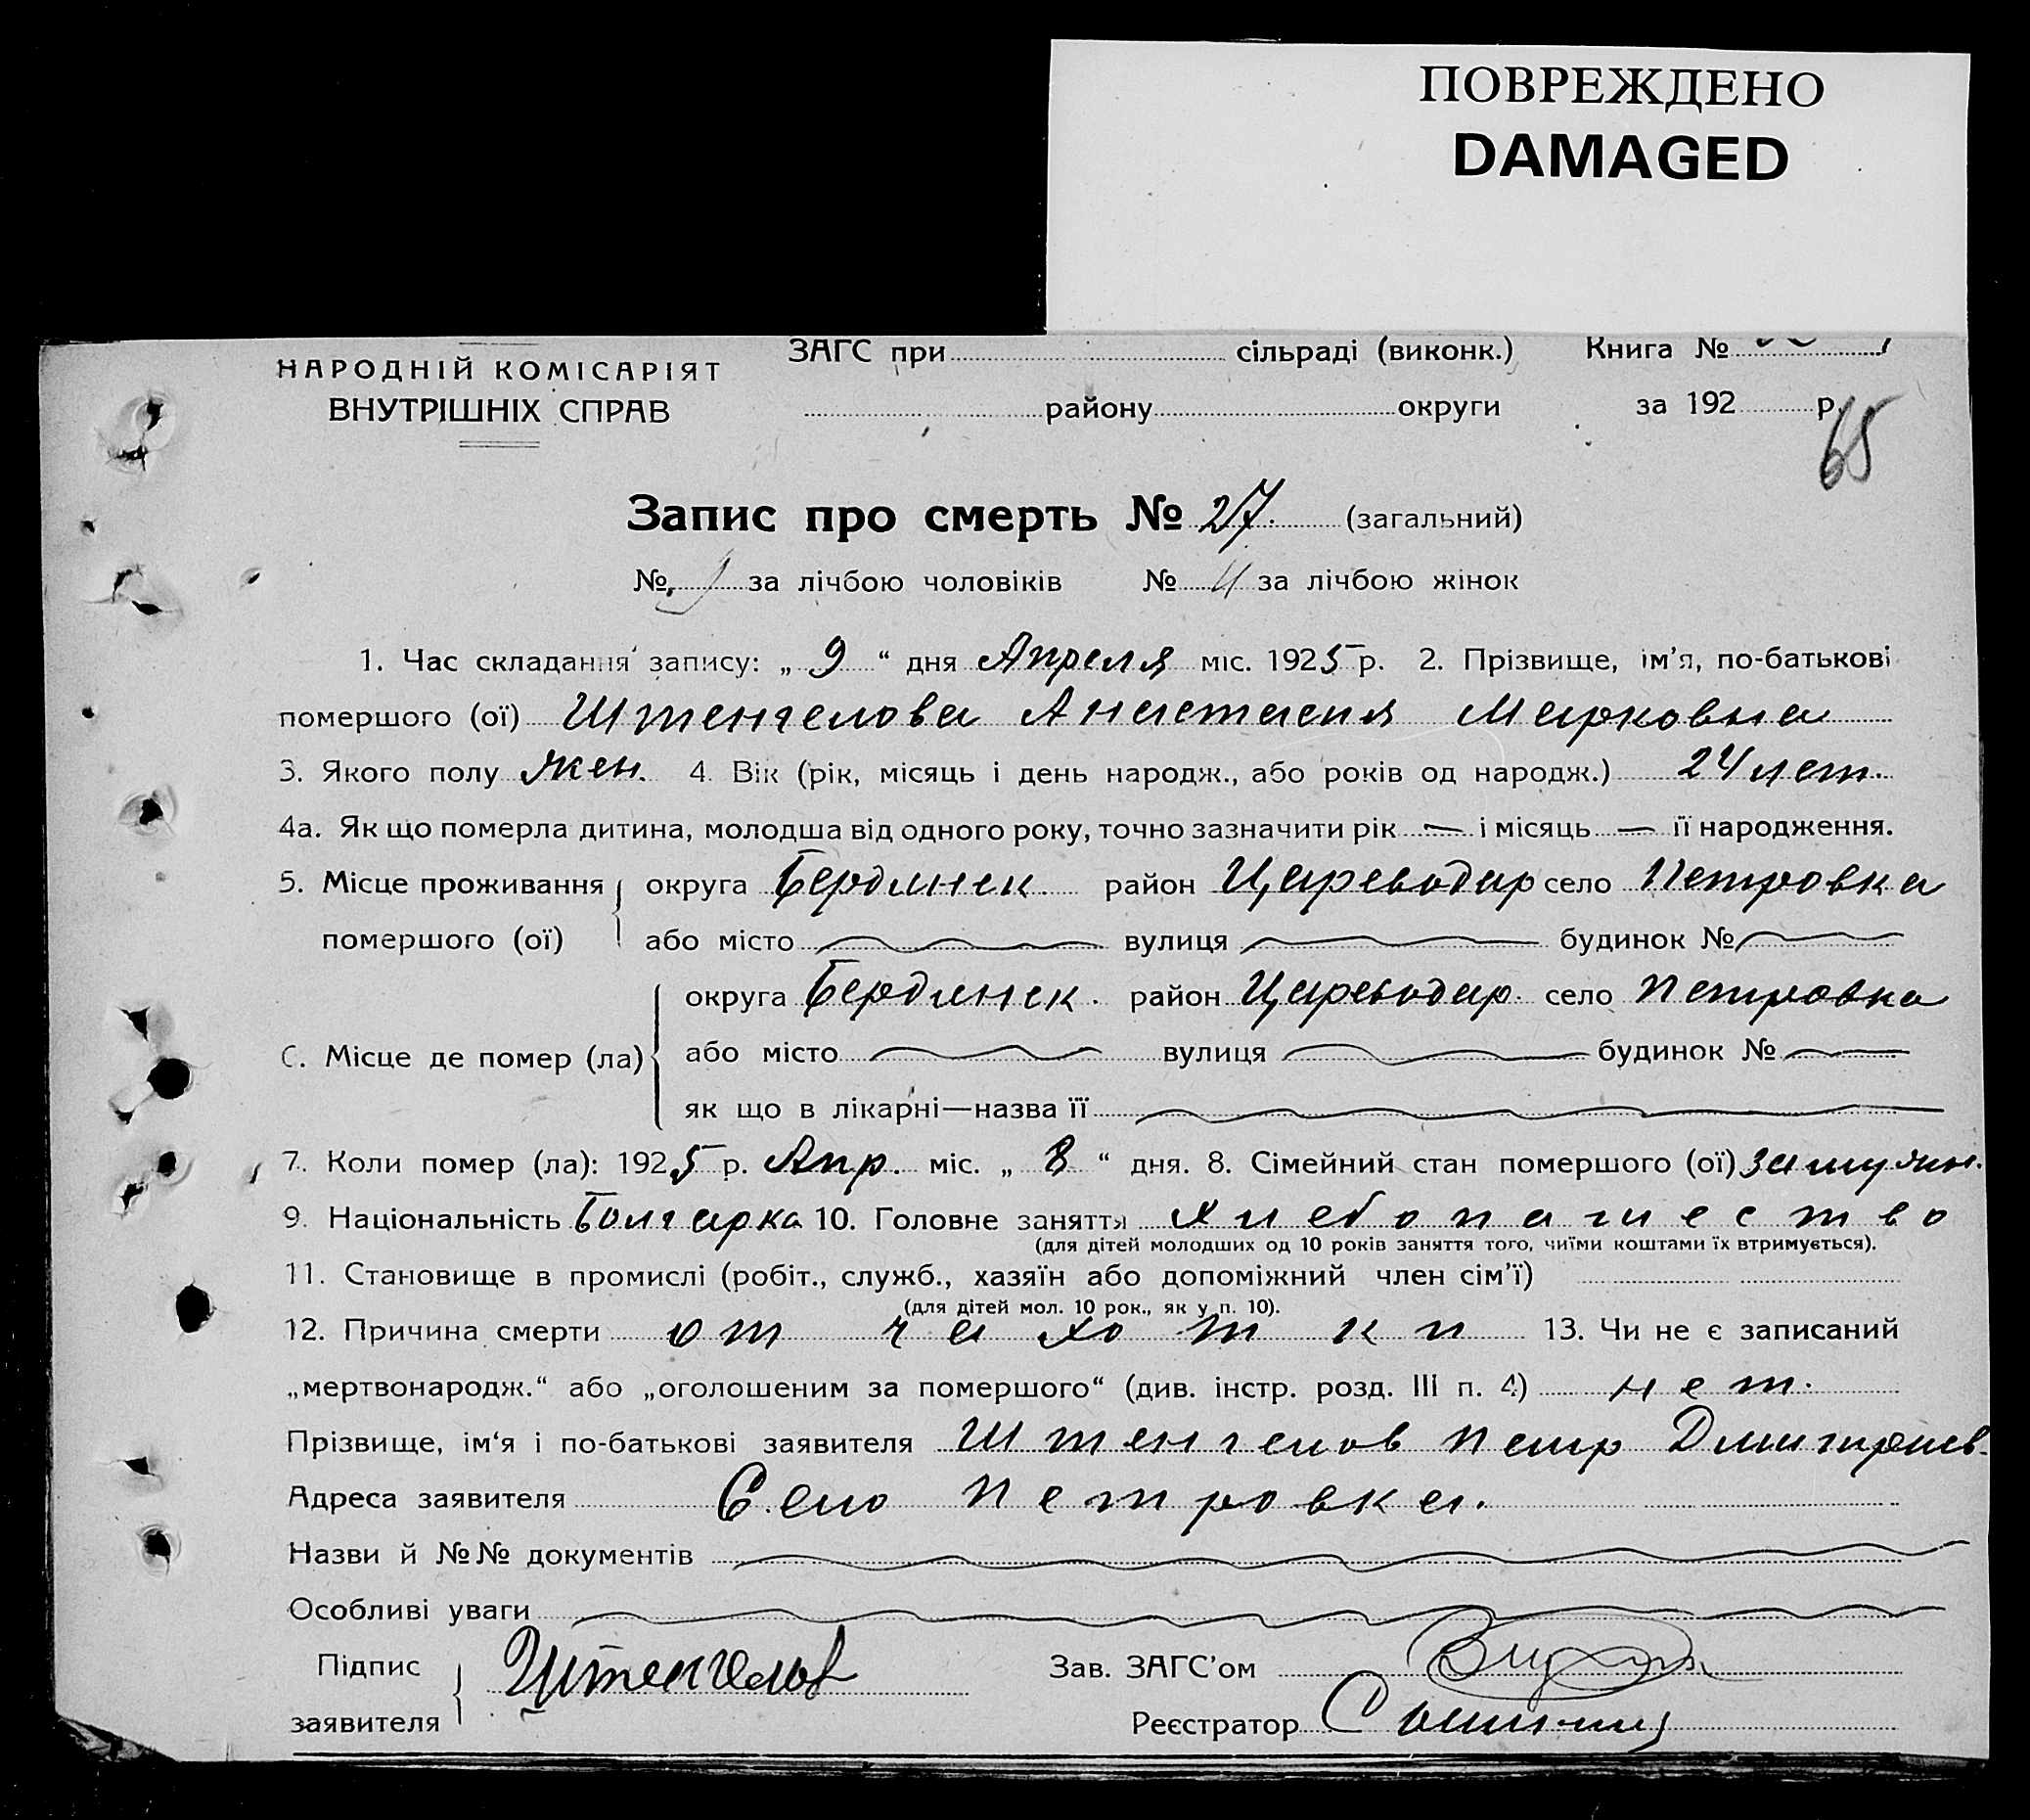 ПОВРЕЖДЕНО
DAMAGED
НАРОДНІЙ КОМІСАРІЯТ
ВНУТРІШНІХ СПРАВ
ЗАГС при сільраді (виконк.) Книга №
району округи за 192 р.
65
Запис про смерть № 27. (загальний)
№ за лічбою чоловіків № 11 за лічбою жінок
1. Час складання запису: „ 9 “ дня Апреля міс. 1925 р. 2. Прізвище, ім’я, по-батькові
помершого (ої) Штенгелова Анастасия Марковна
3. Якого полу жен. 4. Вік (рік, місяць і день народж., або років од народж.) 24 лет.
4а. Як що померла дитина, молодша від одного року, точно зазначити рік — і місяць — її народження.
5. Місце проживання округа Бердянск. район Цареводар село Петровка
помершого (ої) або місто вулиця будинок №
округа Бердянск. район Цареводар. село Петровка
С. Місце де помер (ла) або місто вулиця будинок №
як що в лікарні—назва її
7. Коли помер (ла): 1925 р. Апр. міс. „ 8 “ дня. 8. Сімейний стан помершого (ої) замужн.
9. Національність Болгарка 10. Головне заняття Хлебопашество
(для дітей молодших од 10 років заняття того, чиїми коштами їх втримується).
11. Становище в промислі (робіт., служб., хазяїн або допоміжний член сім’ї)
(для дітей мол. 10 рок., як у п. 10).
12. Причина смерти от чахотки 13. Чи не є записаний
„мертвонародж.“ або „оголошеним за помершого“ (див. інстр. розд. III п. 4) нет.
Прізвище, ім‘я і по-батькові заявителя Штенгелов Петр Дмитриев.
Адреса заявителя Село Петровка.
Назви й №№ документів
Особливі уваги
Підпис Штенгелов Зав. ЗАГС’ом
заявителя Реєстратор